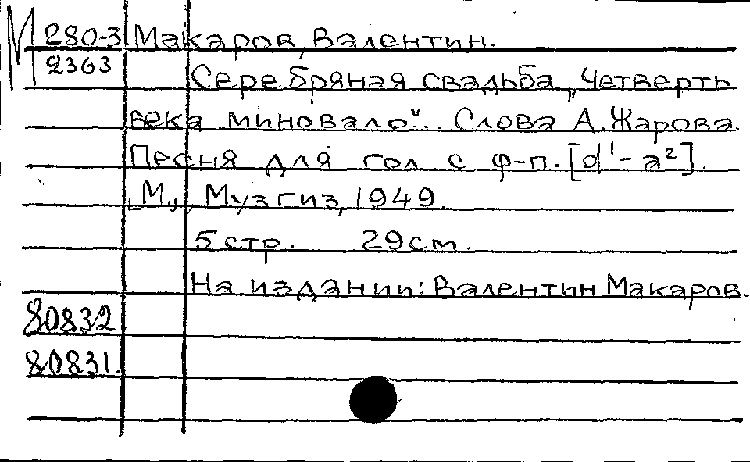 М 280-3 Макаров, Валентин.
2363
Серебряная свадьба „Четверть
века миновало“. Слова А. Жарова.
Песня для гол с ф-п. [d¹-a²].
М., Музгиз, 1949.
5 стр. 29 см.
На издании: Валентин Макаров.
80832
80831.